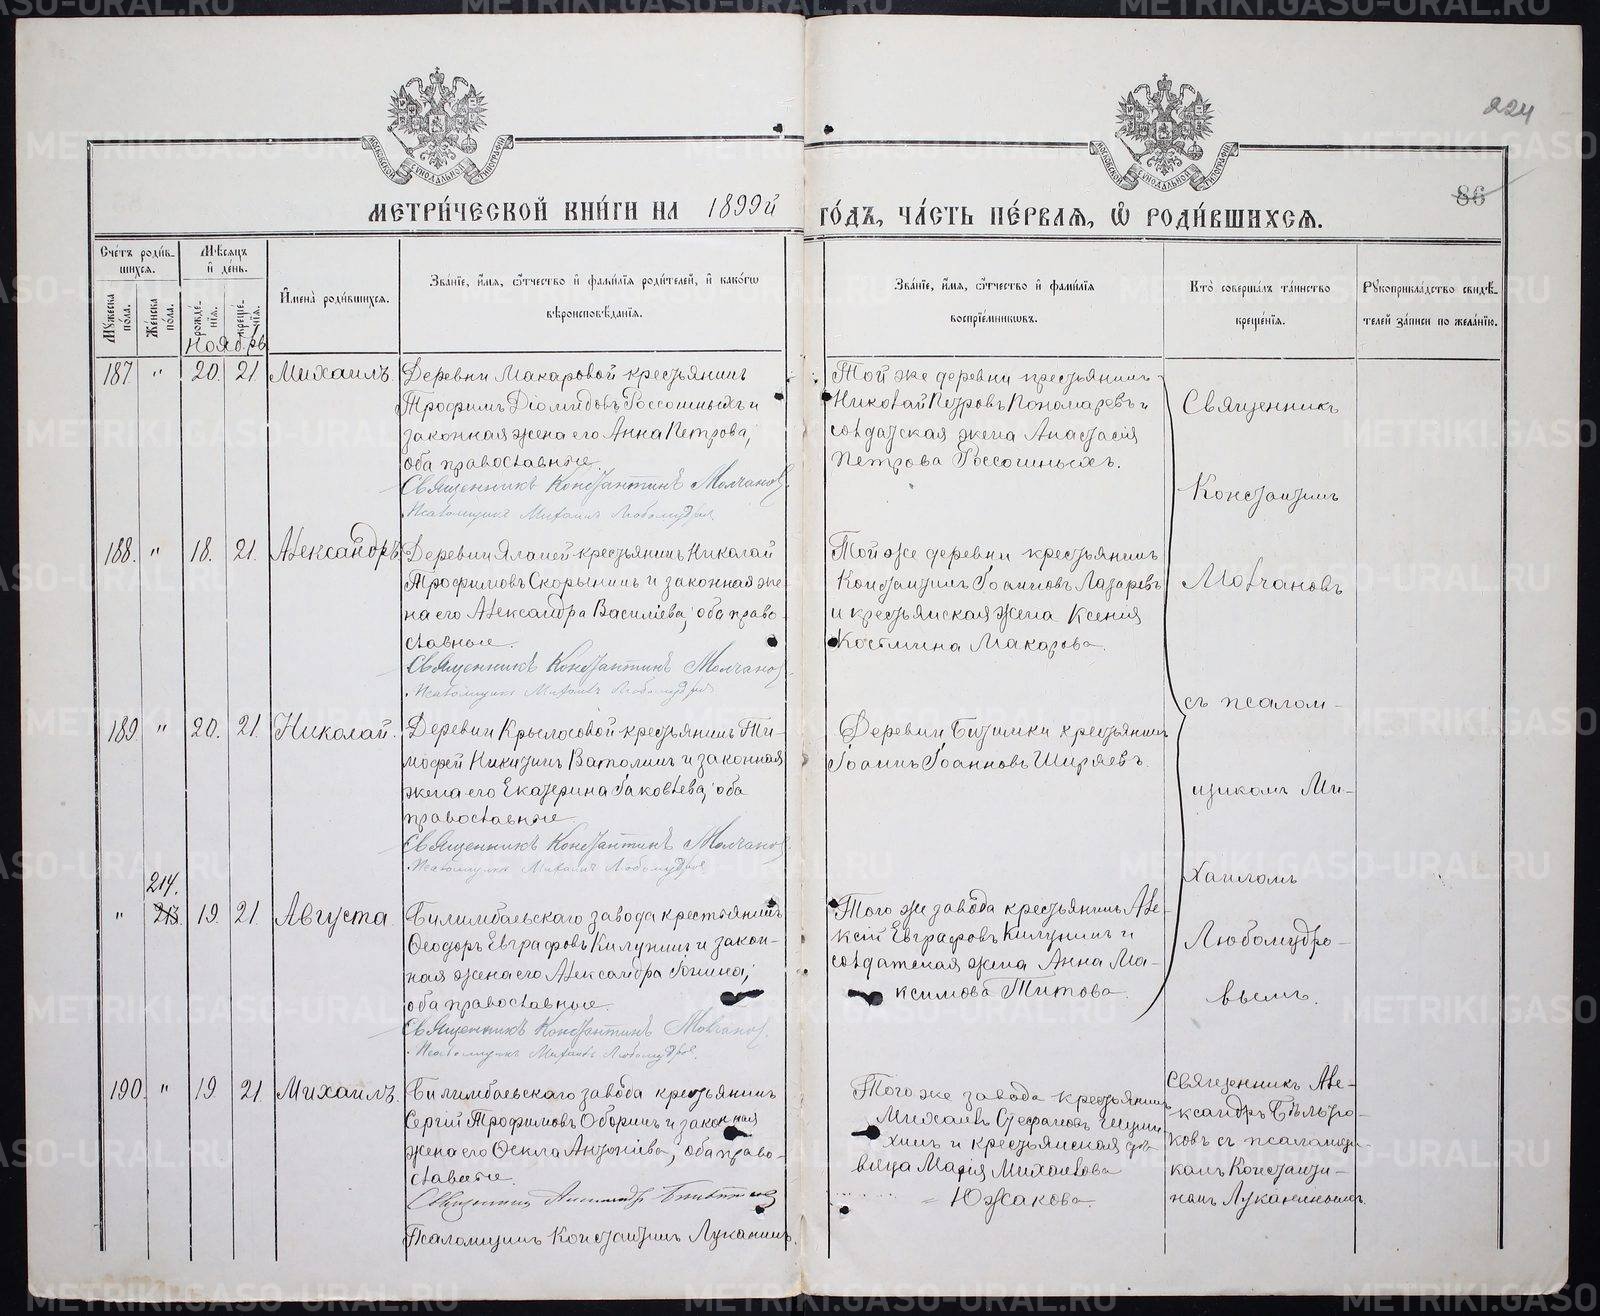 224
86
МЕТРИ́ЧЕСКОЙ КНИ́ГИ НА 1899й ГО́ДЪ, ЧА́СТЬ ПЕ́РВАѦ, Ѽ РОДИ́ВШИХСѦ.
МОСКОВСКОЙ СѴНОДАЛЬНОЙ ТИПОГРАФІИ
МОСКОВСКОЙ СѴНОДАЛЬНОЙ ТИПОГРАФІИ
Сче́тъ роди́в-
шихсѧ.
Мꙋжеска пола.
Же́нска по́ла.
Мѣ́сѧцъ
и҆ де́нь.
рожде́-
нїѧ.
креще́-
нїѧ.
Ноябрь
И҆мена̀ роди́вшихсѧ.
Зва́нїе, и҆́мѧ, ѻ҆́тчество и҆ фами́лїѧ роди́телей, и҆ како́гѡ
вѣроисповѣ́данїѧ.
Зва́нїе, и҆́мѧ, ѻ҆́тчество и҆ фами́лїѧ
воспрїе́мникѡвъ.
Кто̀ соверша́лъ та́инство
креще́нїѧ.
Рꙋкоприкла́дство свидѣ́-
телей за́писи по жела́нїю.
187 " 20. 21. Михаилъ.
Деревни Макаровой крестьянинъ
Трофимъ Діомидовъ Россошныхъ и
законная жена его Анна Петрова,
оба православные.
Священникъ Константинъ Молчановъ.
Псаломщикъ Михаилъ Любомудровъ
Той же деревни крестьянинъ
Николай Петровъ Пономаревъ и
солдатская жена Анастасія
Петрова Россошныхъ.
Священникъ
Константинъ
Молчановъ
съ псалом-
щикомъ Ми-
хаиломъ
Любомудро-
вымъ.
188. " 18. 21. Александръ
Деревни крестьянинъ Николай
Трофимовъ Скорынинъ и законная же-
на его Александра Василіева, оба право-
славные.
Священникъ Константинъ Молчановъ
Псаломщикъ Михаилъ Любомудровъ
Той же деревни крестьянинъ
Константинъ Іоанновъ Лазаревъ
и крестьянская жена Ксенія
Космина Макарова.
189 " 20. 21. Николай.
Деревни Крылосовой крестьянинъ Ти-
мофей Никитинъ Ватолинъ и законная
жена его Екатерина Іаковлева, оба
православные.
Священникъ Константинъ Молчановъ.
Псаломщикъ Михаилъ Любомудровъ
Деревни Битимки крестьянинъ
Іоаннъ Іоанновъ Ширяевъ.
214.
" 213 19. 21. Августа
Билимбаевскаго завода крестьянинъ
Ѳеодоръ Евграфовъ Килунинъ и закон-
ная жена его Александра Іонина,
оба православные.
Священникъ Константинъ Молчановъ.
Псаломщикъ Михаилъ Любомудровъ.
Того же завода крестьянинъ Але-
ксій Евграфовъ Килунинъ и
солдатская жена Анна Ма-
ксимова Титова.
190. " 19. 21. Михаилъ.
Билимбаевскаго завода крестьянинъ
Сергій Трофимовъ Оборинъ и законная
жена его Ѳекла Антоніева, оба право-
славные.
Священникъ Александръ
Псаломщикъ Константинъ Луканинъ.
Того же завода крестьянинъ
Михаилъ Стефановъ
и крестьянская дѣ-
вица Марія Михаилова
Южакова.
Священникъ Але-
ксандръ
ковъ съ псаломщи-
комъ Константи-
номъ Луканинымъ.